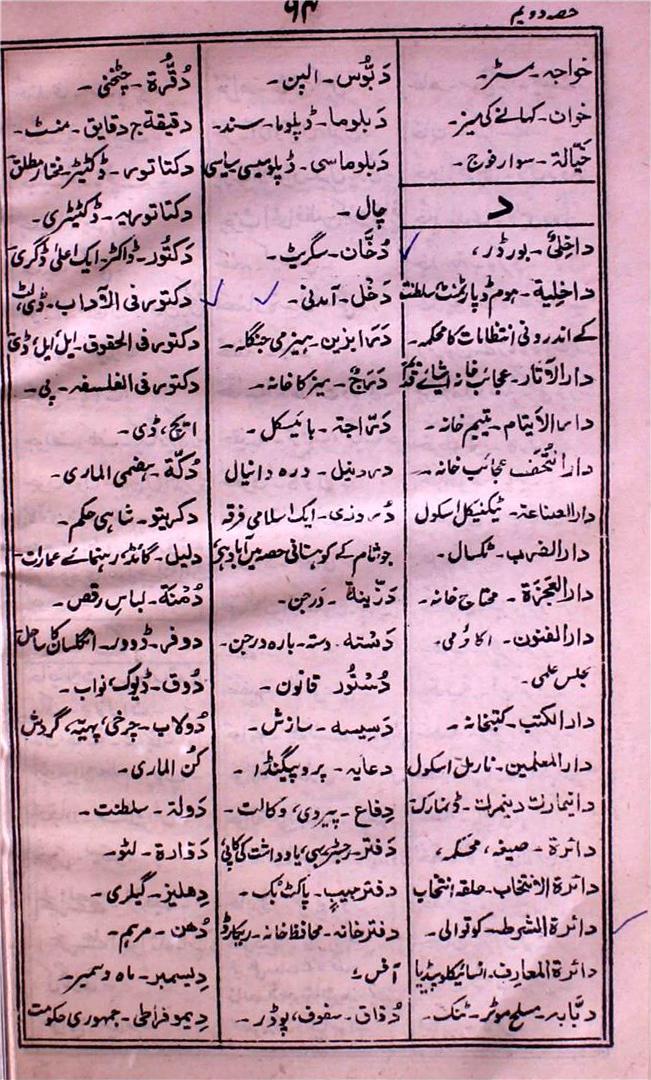 حصہ دویم
۶۴
خواجہ۔ مسٹر۔
خوان۔ کھانے کی میز۔
خَیّالة۔ سوار فوج۔
د
داخِلیْ۔ بورڈر،
داخِلیة۔ ہوم ڈپارٹمنٹ، سلطنت
کے اندرونی انتظامات کا محکمہ۔
دار الآثار۔ عجائب خانہ اشیائے قدیمہ
دار الأیتام۔ یتیم خانہ۔
دار التُّحَف عجائب خانہ۔
دار الصناعة۔ ٹیکنیکل اسکول
دار الضرب۔ ٹکسال۔
دار العَجَزَة۔ محتاج خانہ۔
دار الفنون۔ اکاڈمی۔
مجلس علمی۔
دار الکتب۔ کتبخانہ۔
دار المعلمین۔ نارمل اسکول
دانیمارت دینمرک۔ ڈنمارک
دائرة۔ صیغہ، محکمہ،
دائرة الانتخاب۔ حلقہ انتخاب
دائرة الشرطہ۔ کوتوالی۔
دائرة المعارف۔ انسائیکلوپیڈیا
دبّابہ۔ مسلح موٹر۔ ٹنک۔
دَبّوُس۔ الپن۔
دبلوما۔ ڈپلوما۔ سند۔
دَبلوماسی۔ ڈپلومیسی سیاسی
چال۔
دُخَّان۔ سگریٹ۔
دَخْل۔ آمدنی۔
دَرابزین۔ ہینرمی جنگلہ۔
دَرّاجْ۔ میز کا خانہ۔
دَرّاجة۔ بائیسکل۔
دردنیل۔ درہ دانیال
دُروزی۔ ایک اسلامی فرقہ
جو شام کے کوہستانی حصہ میں آباد ہے
دَرّینة۔ درجن۔
دَسْتہ۔ دستہ۔ بارہ درجن۔
دُسْتُور قانون۔
دَسِیسہ۔ سازش۔
دعایہ۔ پروپیگنڈا۔
دِفاع۔ پیروی، وکالت۔
دَفتر۔ رجسٹر، بہی، یادداشت کی کاپی
دفتر جیب۔ پاکٹ بک۔
دفتر خانہ۔ محافظ خانہ۔ ریکارڈ
آفس،
دُقاق۔ سفوف، پوڈر۔
دُقُّرة۔ چٹخنی۔
دقیقة ج دقایق۔ منٹ۔
دکتاتور۔ ڈکٹیٹر۔ مختار مطلق
دکتاتوریہ۔ ڈکٹیٹری۔
دَکتُور۔ ڈاکٹر۔ ایک اعلیٰ ڈگری
دکتور فی الآداب۔ ڈی، لٹ
دکتور فی الحقوق۔ ایل، ایل، ڈی
دکتور فی الفلسفہ۔ پی۔
ایچ، ڈی۔
دُکّة۔ ہضمی الماری۔
دکریتو۔ شاہی حکم۔
دلیل۔ گائڈ، رہنمائے عمارات۔
دُمْنَة۔ لباس رقص۔
دوفر۔ ڈوور۔ انگلستان کا ساحل
دُوق۔ ڈیوک، نواب۔
دُولاب۔ چرخی، پہیّہ، گردش
کن الماری۔
دَولة۔ سلطنت۔
دَوّارة۔ لٹو۔
دِھلیز۔ گیلری۔
دُھن۔ مرہم۔
دِیسمبر۔ ماہ دسمبر۔
دِیموقراطی۔ جمہوری حکومت